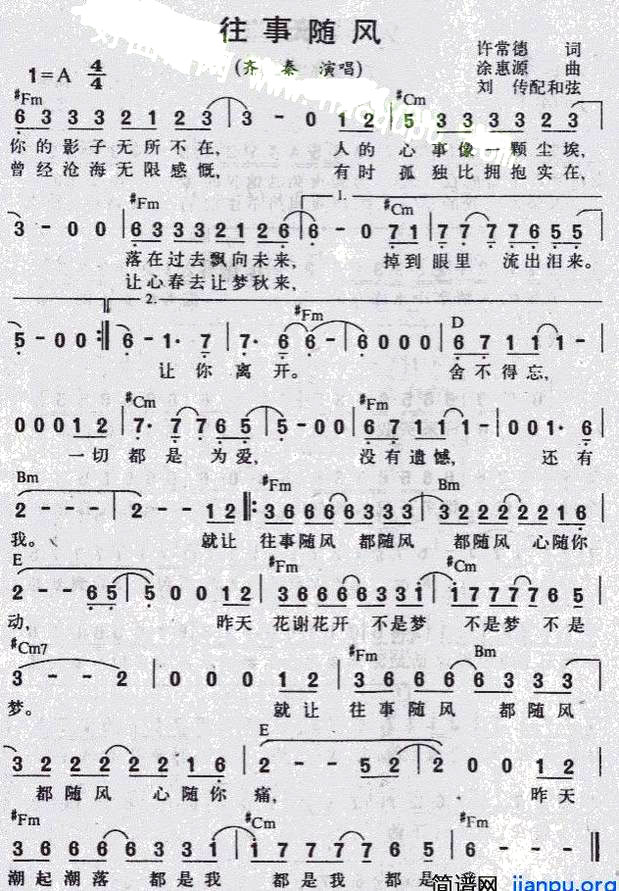 往事随风
许常德 词
1=A 4/4 (齐秦 演唱) 涂惠源 曲
刘传配和弦
#Fm #Cm
6 3 3 3 2 1 2 3 | 3 - 0 1 2 | 5 3 3 3 3 2 3 |
你的影子无所不在, 人的 心事像一颗尘埃,
曾经沧海无限感慨, 有时 孤独比拥抱实在,
#Fm 1. #Cm
3 - 0 0 | 6 3 3 3 2 1 2 6 | 6 - 0 7 1 | 7 7 7 7 7 6 5 5 |
落在过去飘向未来, 掉到 眼里 流出泪来。
让心春去让梦秋来,
2. #Fm D
5 - 0 0 :| 6 - 1· 7 | 7· 6 6 - | 6 0 0 0 | 6 7 1 1 1 - |
让你离开。 舍不得忘,
#Cm #Fm
0 0 0 1 2 | 7· 7 7 6 5 5 | 5 - 0 0 | 6 7 1 1 1 - | 0 0 1· 6 |
一切 都是 为爱, 没有遗憾, 还有
Bm #Fm Bm
2 - - - | 2 - - 1 2 |: 3 6 6 6 6 3 3 3 | 3 2 2 2 2 2 1 6 |
我。 就让 往事随风 都随风 都随风 心随你
E #Fm #Cm
2 - - 6 5 | 5 0 0 1 2 | 3 6 6 6 6 3 3 1 | 1 7 7 7 7 6 5 |
动, 昨天 花谢花开 不是梦 不是梦 不是
#Cm7 #Fm Bm
3 - - 2 | 0 0 0 1 2 | 3 6 6 6 6 3 3 3 |
梦。 就让 往事随风 都随风
E
3 2 2 2 2 2 1 6 | 2 - - 5 2 | 2 0 0 1 2 |
都随风 心随你痛, 昨天
#Fm #Cm #Fm
3 6 6 6 6 3 3 1 | 1 7 7 7 7 6 5 | 6 - - - ||
潮起潮落 都是我 都是我 都是
简谱网 jianpu.org